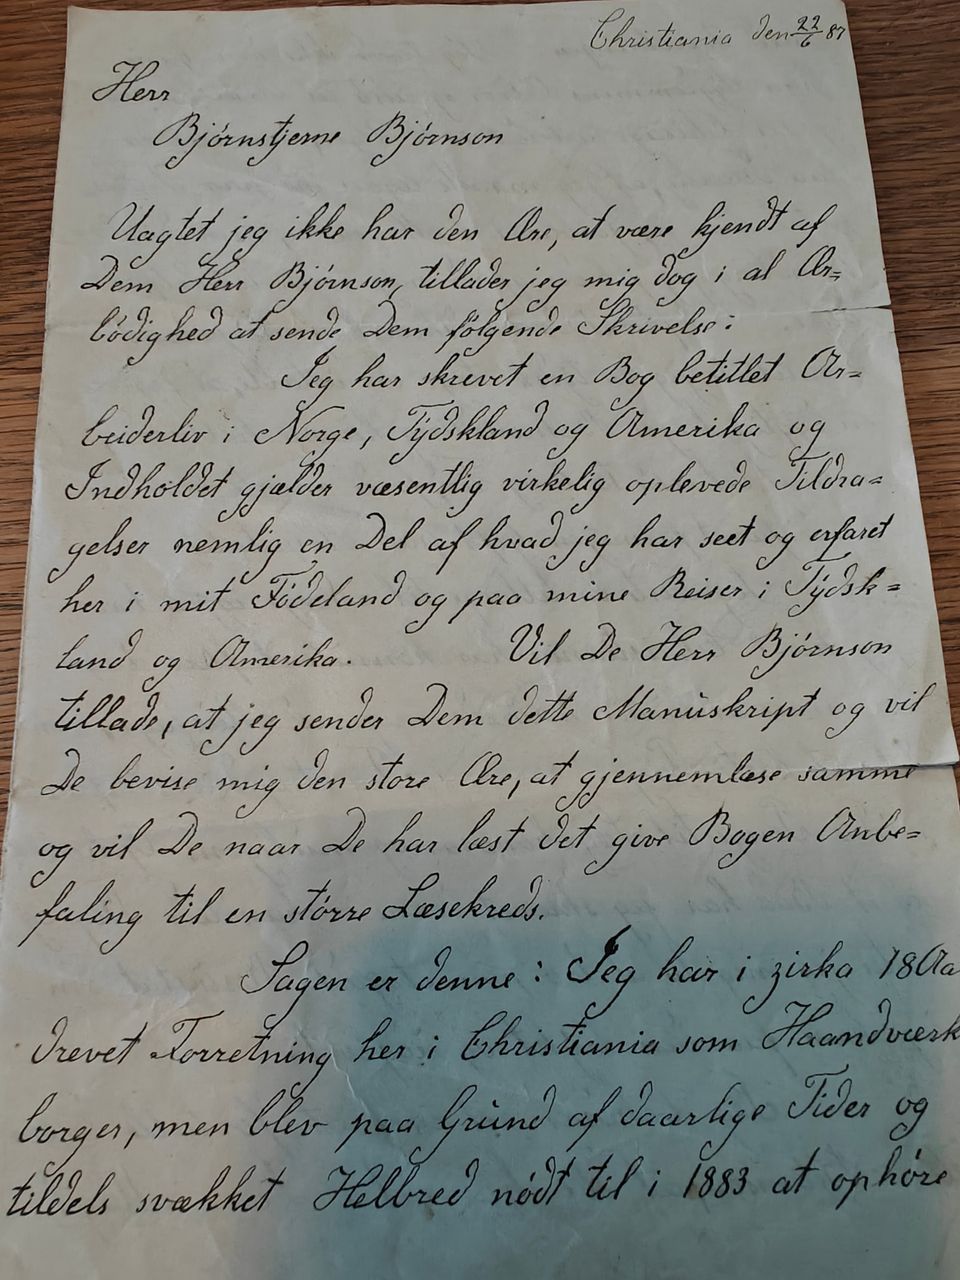 Christiania den 22/6 87
Herr
Bjørnstjerne Bjørnson
Uagtet jeg ikke har den Ære, at være kjendt af
Dem Herr Bjørnson, tillader jeg mig dog i al Ær=
bødighed at sende Dem følgende Skrivelse:
Jeg har skrevet en Bog betitlet Ar=
beiderliv i Norge, Tydskland og Amerika og
Indholdet gjælder væsentlig virkelig oplevede Tildra=
gelser nemlig en Del af hvad jeg har seet og erfaret
her i mit Fødeland og paa mine Reiser i Tydsk=
land og Amerika. Vil De Herr Bjørnson
tillade, at jeg sender Dem dette Manuskript og vil
De bevise mig den store Ære, at gjennemlæse samme
og vil De naar De har læst det give Bogen Anbe=
faling til en større Læsekreds.
Sagen er denne: Jeg har i zirka 18 Aa
drevet Forretning her i Christiania som Haandværk
borger, men blev paa Grund af daarlige Tider og
tildels svækket Helbred nødt til i 1883 at ophøre